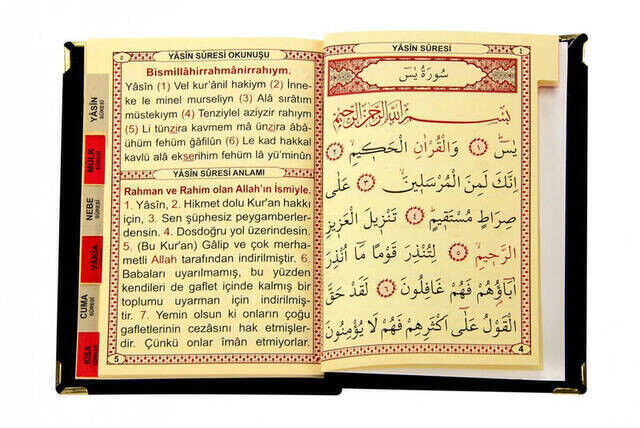 YÂSÎN SÛRESİ
٤
سُورَةُ يٰسٓ
بِسْمِ اللّٰهِ الرَّحْمٰنِ الرَّحِيمِ
يٰسٓ ﴿١﴾ وَالْقُرْاٰنِ الْحَكِيمِ ﴿٢﴾
اِنَّكَ لَمِنَ الْمُرْسَلِينَ ﴿٣﴾ عَلٰى
صِرَاطٍ مُسْتَقِيمٍ ﴿٤﴾ تَنْزِيلَ الْعَزِيزِ
الرَّحِيمِ ﴿٥﴾ لِتُنْذِرَ قَوْمًا مَٓا اُنْذِرَ
اٰبَٓاؤُهُمْ فَهُمْ غَافِلُونَ ﴿٦﴾ لَقَدْ حَقَّ
الْقَوْلُ عَلٰٓى اَكْثَرِهِمْ فَهُمْ لَا يُؤْمِنُونَ
4
٥
YÂSÎN SÛRESİ OKUNUŞU
Bismillâhirrahmânirrahıym.
Yâsîn (1) Vel kur'ânil hakiym (2) İnne-
ke le minel murseliyn (3) Alâ sırâtım
müstekıym (4) Tenziylel aziyzir rahıym
(5) Li tünzira kavmem mâ ünzira âbâ-
ühüm fehüm gâfilûn (6) Le kad hakkal
kavlü alâ ekserihim fehüm lâ yü'minûn
YÂSÎN SÛRESİ ANLAMI
Rahman ve Rahim olan Allah'ın İsmiyle.
1. Yâsîn, 2. Hikmet dolu Kur'an hakkı
için, 3. Sen şüphesiz peygamberler-
densin. 4. Dosdoğru yol üzerindesin.
5. (Bu Kur'an) Gâlip ve çok merha-
metli Allah tarafından indirilmiştir. 6.
Babaları uyarılmamış, bu yüzden
kendileri de gaflet içinde kalmış bir
toplumu uyarman için indirilmiş-
tir. 7. Yemin olsun ki onların çoğu
gafletlerinin cezâsını hak etmişler-
dir. Çünkü onlar îmân etmiyorlar.
5
YÂSÎN
SÛRESİ
MÜLK
NEBE
SÛRESİ
VÂKIA
CUMA
SÛRESİ
KISA